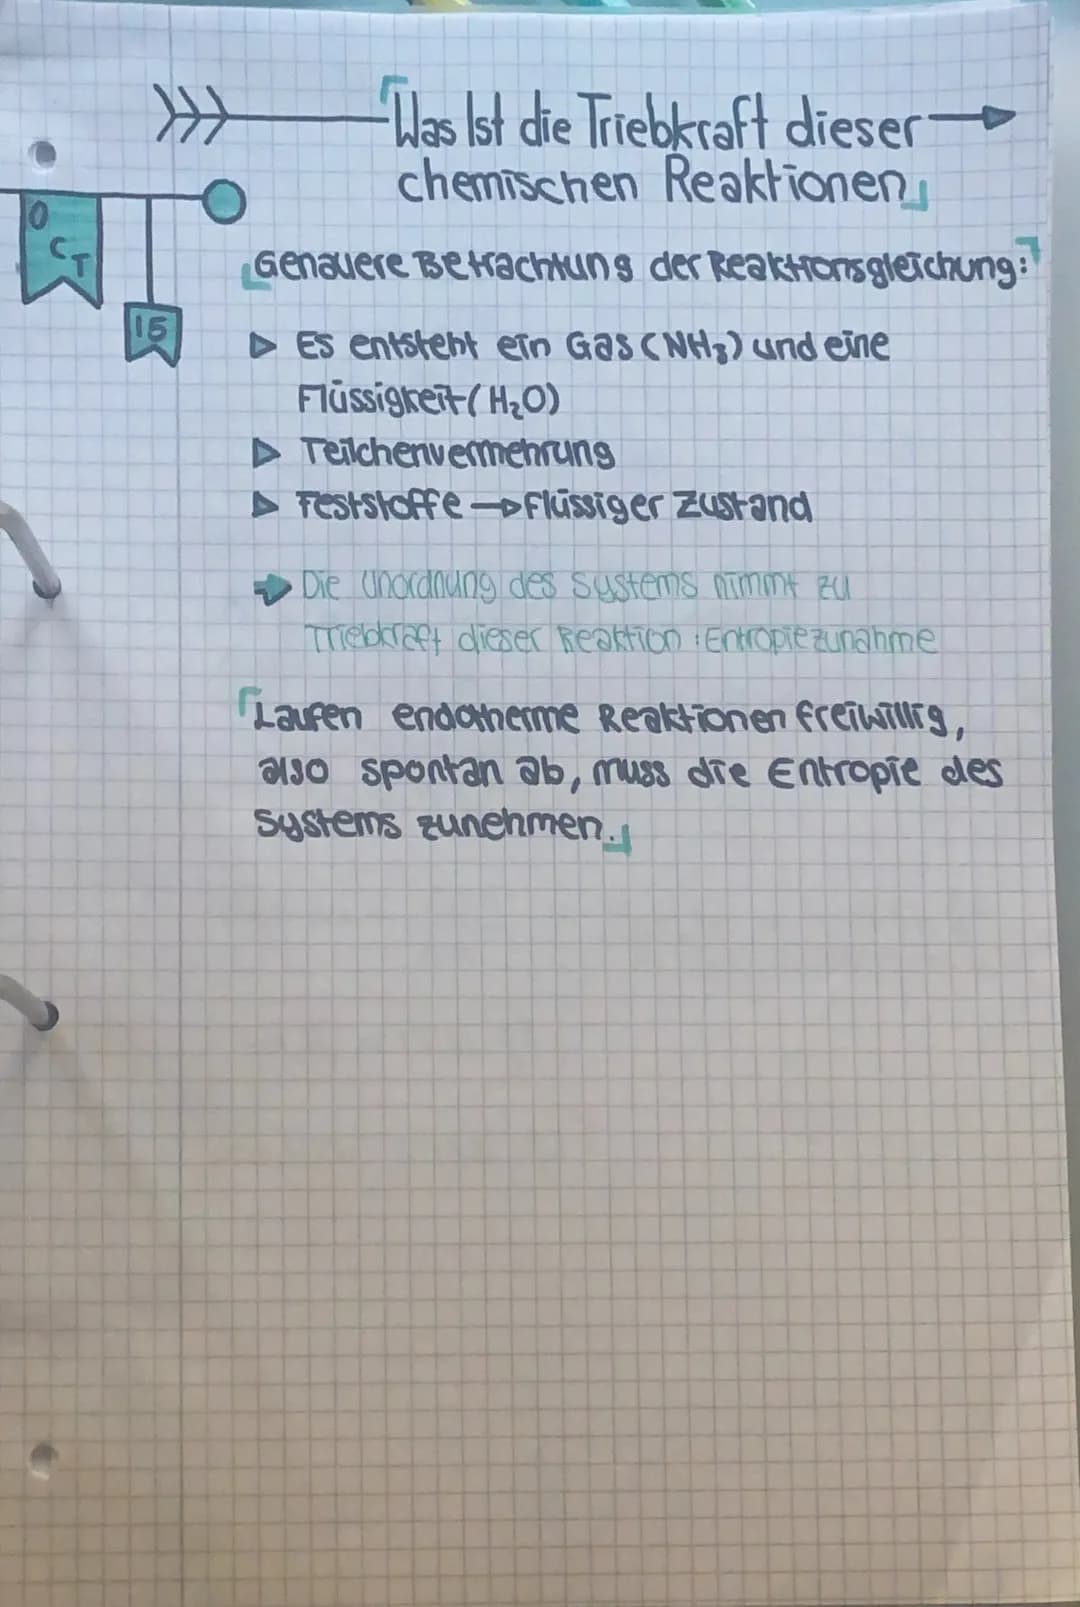 Was Ist die Triebkraft dieser
chemischen Reaktionen
OCT
15
Genauere Betrachtung der Reaktionsgleichung:
▷ Es entsteht ein Gas (NH₃) und eine
Flüssigkeit (H₂O)
▷ Teilchenvermehrung
▷ Feststoffe → Flüssiger Zustand
→ Die Unordnung des Systems nimmt zu
Triebkraft dieser Reaktion : Entropiezunahme
Laufen endotherme Reaktionen freiwillig,
also spontan ab, muss die Entropie des
Systems zunehmen.